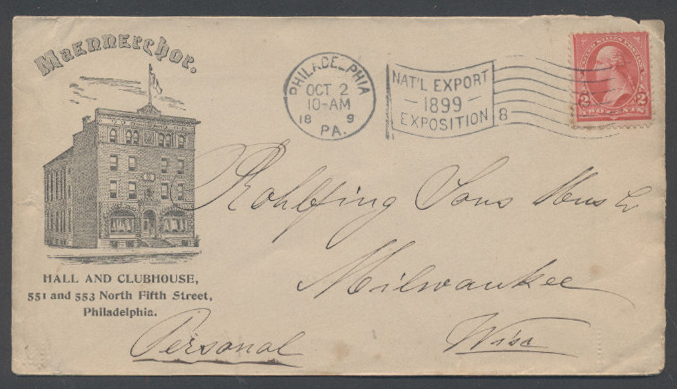 Maennerchor.
HALL AND CLUBHOUSE,
551 and 553 North Fifth Street,
Philadelphia.
PHILADELPHIA
OCT 2
10-AM
18 9
PA.
NAT'L EXPORT
1899
EXPOSITION
8
2 2
TWO CENTS
Rohlfing Sons
Milwaukee
Wisc
Personal